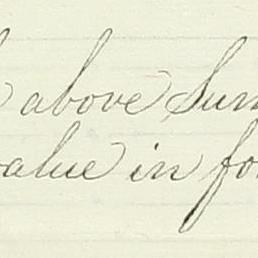 above Sum
value in fo